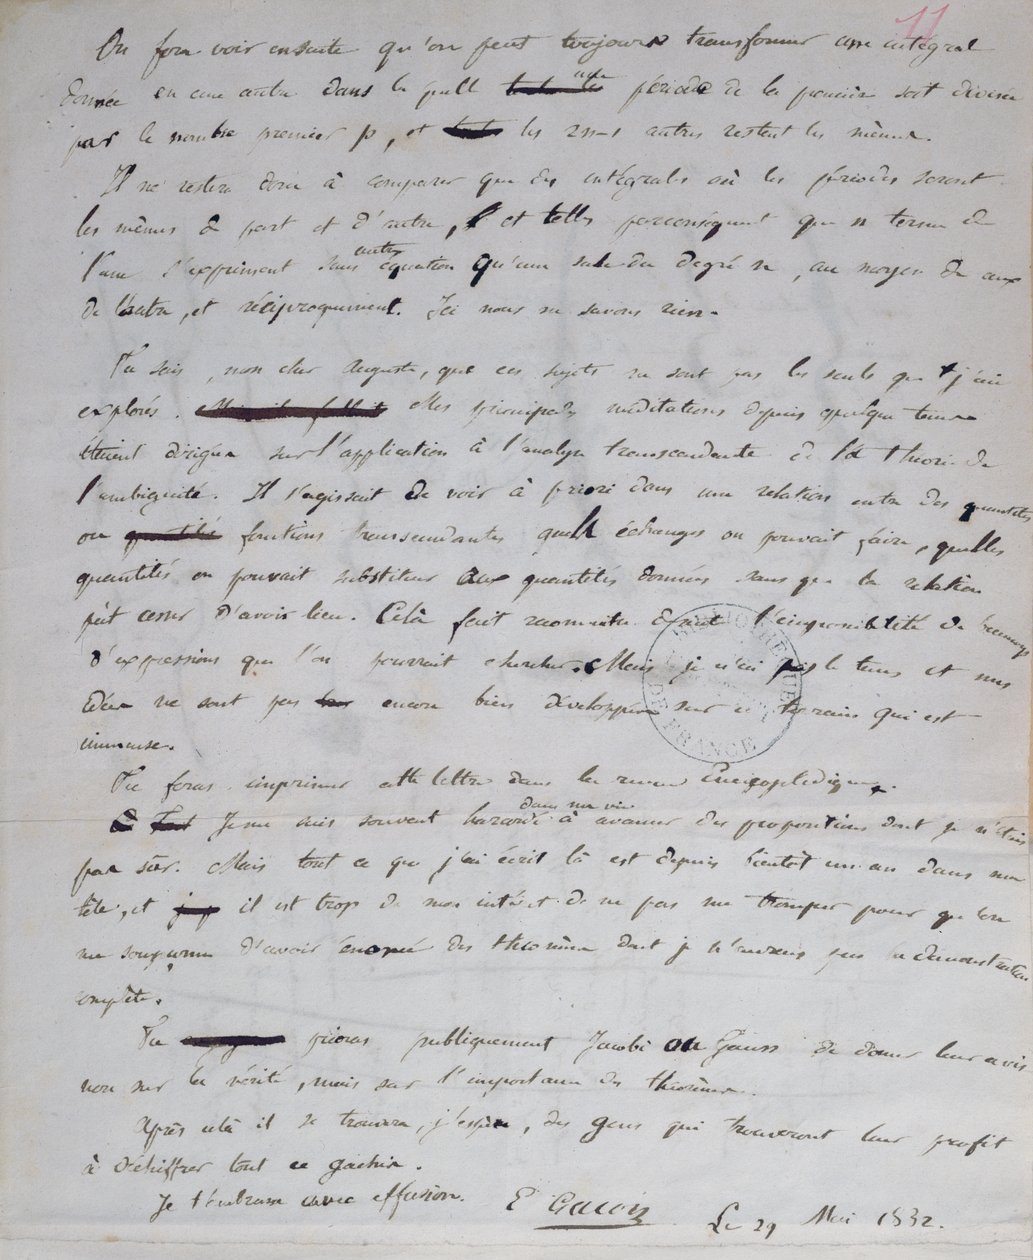 11
On fera voir ensuite qu'on peut toujours transformer une intégrale
donnée en une autre dans laquelle une période de la première soit divisée
par le nombre premier p, et les 2n-1 autres restent les mêmes.
Il ne restera donc à comparer que des intégrales où les périodes seront
les mêmes de part et d'autre, et telles parconséquent que n termes de
l'une s'expriment sans autre équation qu'une seule du degré n, au moyen de ceux
de l'autre, et réciproquement. Ici nous ne savons rien.
Tu sais, mon cher Auguste, que ces sujets ne sont pas les seuls que j'aie
explorés. Mes principales méditations depuis quelque tems
étaient dirigées sur l'application à l'analyse transcendante de la théorie de
l'ambiguité. Il s'agissait de voir à priori dans une relation entre des quantités
ou fonctions transcendantes quels échanges on pouvait faire, quelles
quantités on pouvait substituer aux quantités données sans que la relation
pût cesser d'avoir lieu. Celà fait reconnaître l'impossibilité de beaucoup
d'expressions que l'on pourrait chercher. Mais je n'ai pas le tems et mes
idées ne sont pas encore bien développées sur ce terrain qui est
immense.
Tu feras imprimer cette lettre dans la revue Encyclopédique.
Je me suis souvent hazardé dans ma vie à avancer des propositions dont je n'étais
pas sûr. Mais tout ce que j'ai écrit là est depuis bientôt un an dans ma
tête, et il est trop de mon intérêt de ne pas me tromper pour qu'on
me soupçonne d'avoir énoncé des théorèmes dont je n'aurais pas la démonstration
complète.
Tu prieras publiquement Jacobi ou Gauss de donner leur avis
non sur la vérité, mais sur l'importance des théorèmes.
Après celà il se trouvera, j'espère, des gens qui trouveront leur profit
à déchiffrer tout ce gachis.
Je t'embrasse avec effusion. E Galois Le 29 Mai 1832.
BIBLIOTHÈQUE
DE FRANCE